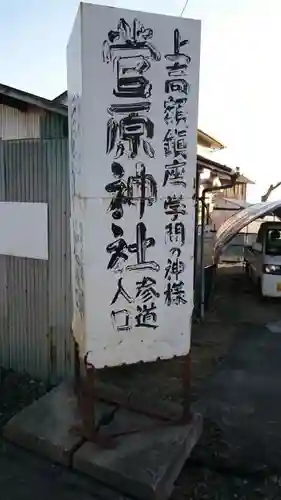 上高額鎮座学問の神様
菅原神社参道入口